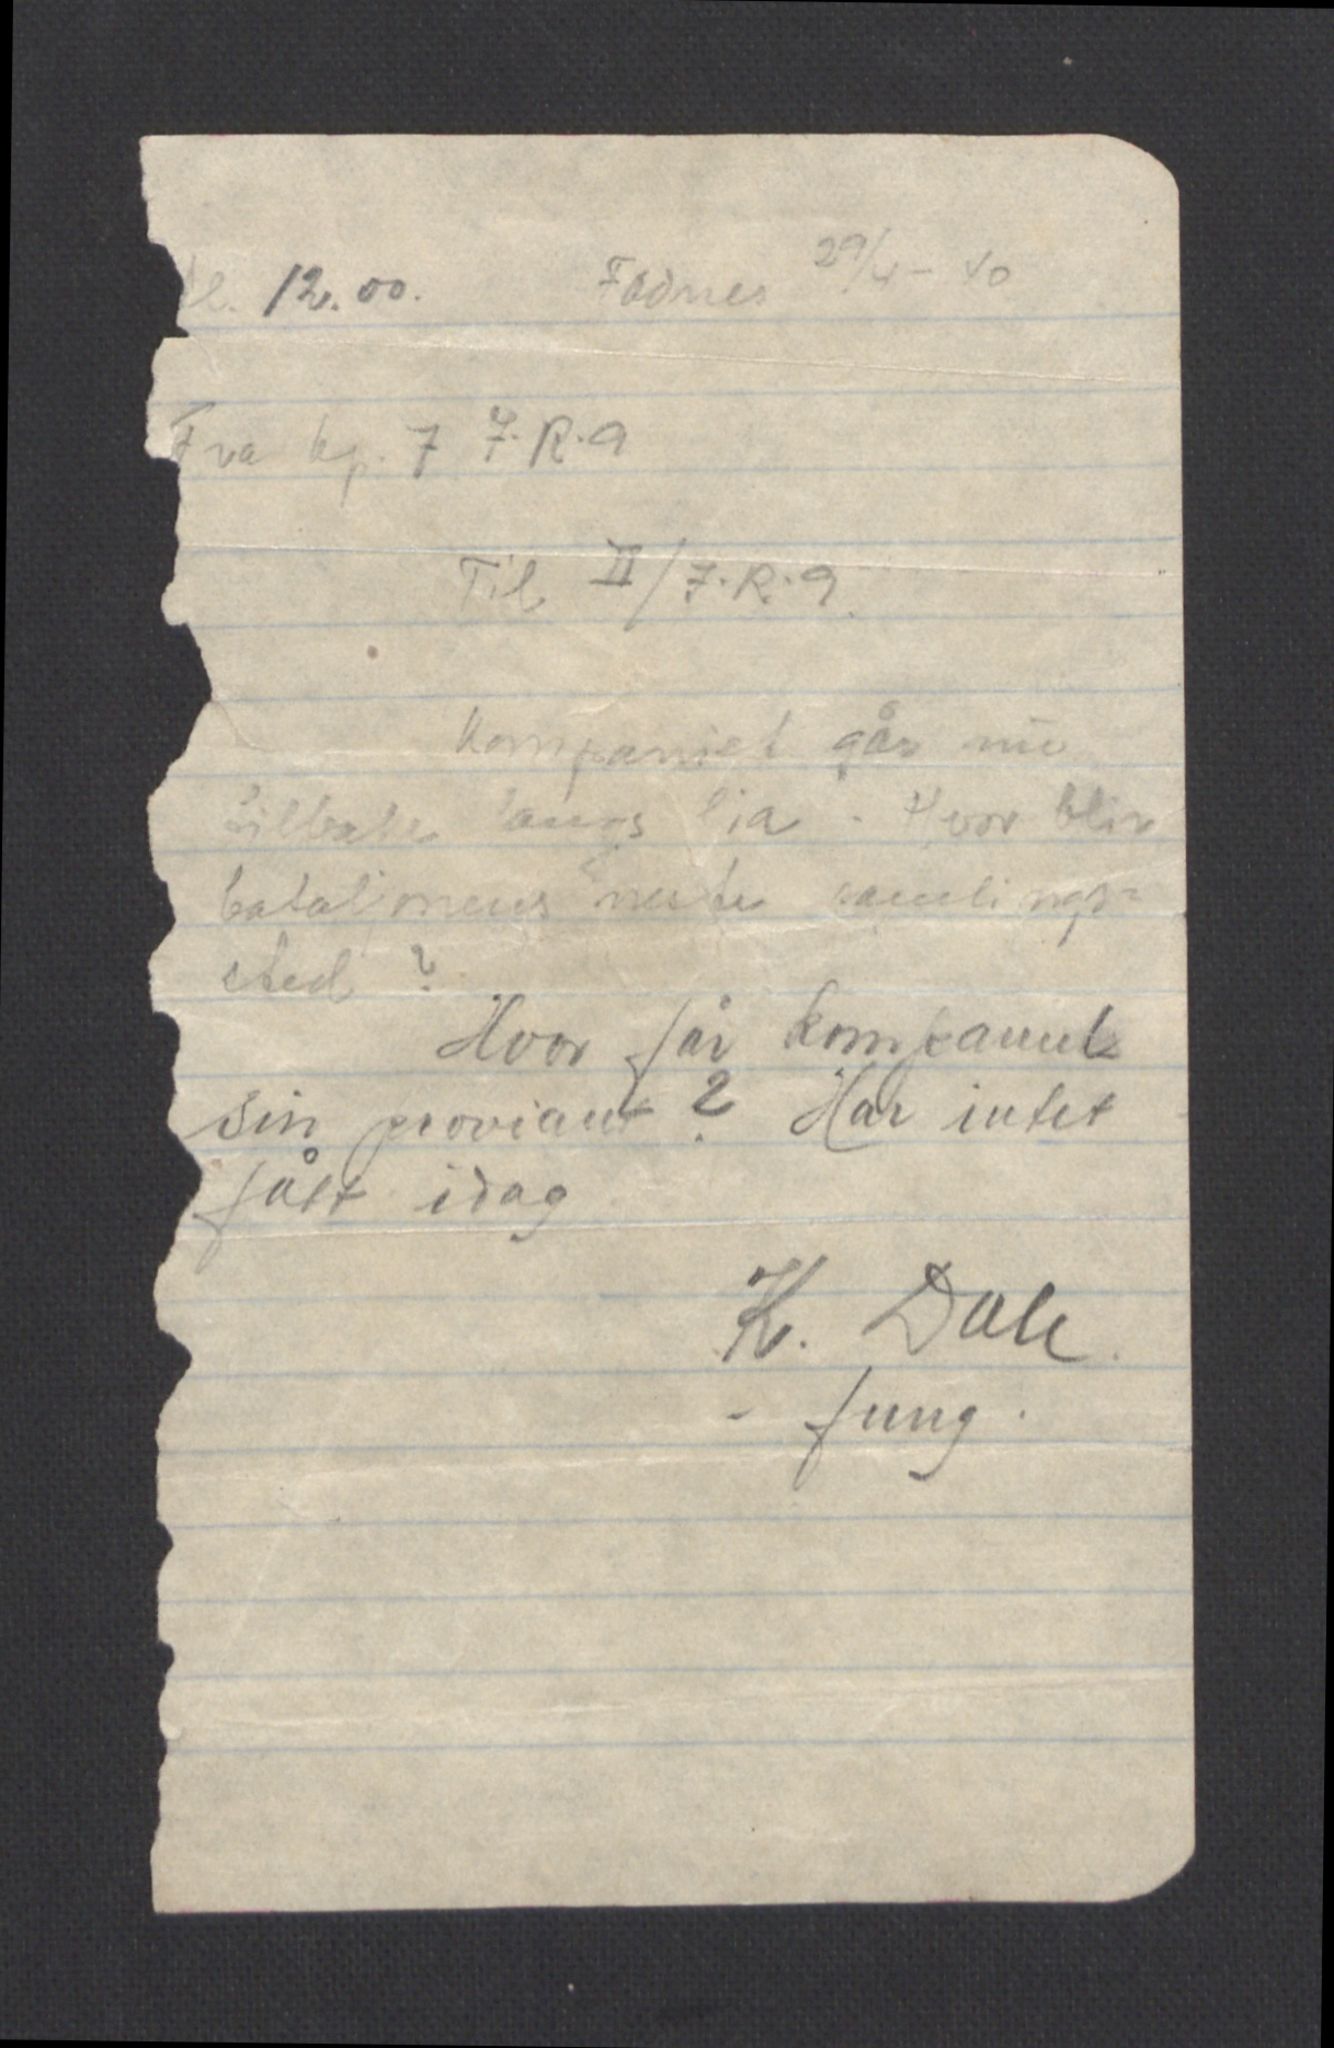 kl. 12.00. Fødnes 29/4-40
Fra kp. 7 J.R.9
Til II/J.R.9.
Kompaniet går nu
tilbake langs lia. Hvor blir
bataljonens neste samlings=
sted?
Hvor får kompaniet
sin proviant? Har intet
fått idag
K. Dale.
- fung.